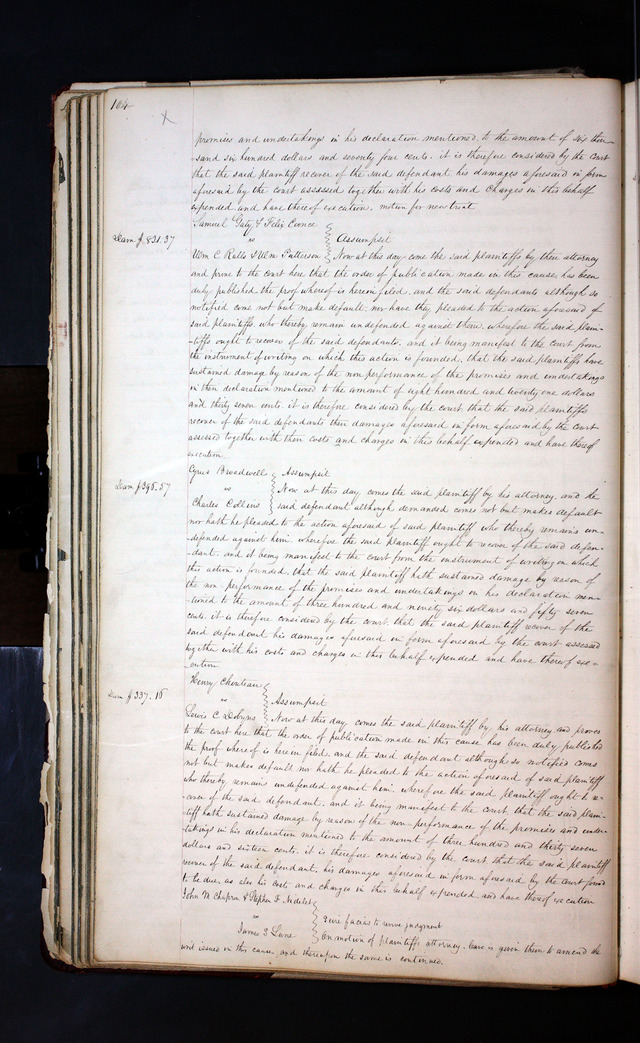 104
promises and undertakings in his declaration mentioned, to the amount of six thou-
sand six hundred dollars and seventy four cents. it is therefore considered by the court
that the said plaintiff recover of the said defendant his damages aforesaid in form
aforesaid by the court assessed together with his costs and charges in this behalf
expended and have thereof execution. motion for new trial
Samuel Gaty & Felix Coonce
Dam $821.37 vs Assumpsit
Wm C Ralls & Wm Patterson Now at this day come the said plaintiffs by their attorney
and prove to the court here that the order of publication made in this cause has been
duly published the proof whereof is herein filed, and the said defendants although so
notified come not but make default nor have they pleaded to the action aforesaid of
said plaintiffs who thereby remain undefended against them. wherefore the said plain-
-tiffs ought to recover of the said defendants. and it being manifest to the court from
the instrument of writing on which this action is founded, that the said plaintiffs have
sustained damage by reason of the non performance of the promises and undertakings
in their declaration mentioned to the amount of eight hundred and twenty one dollars
and thirty seven cents. it is therefore considered by the court that the said plaintiffs
recover of the said defendants their damages aforesaid in form aforesaid by the court
assessed together with their costs and charges in this behalf expended and have thereof
execution.
Cyrus Broadwell Assumpsit
Dam $396.57 vs Now at this day comes the said plaintiff by his attorney, and the
Charles Collins said defendant although demanded comes not but makes default
nor hath he pleaded to the action aforesaid of said plaintiff who thereby remains un-
defended against him. wherefore the said plaintiff ought to recover of the said defen-
dant. and it being manifest to the court from the instrument of writing on which
this action is founded. that the said plaintiff hath sustained damage by reason of
the non-performance of the promises and undertakings in his declaration men-
-tioned to the amount of three hundred and ninety six dollars and fifty seven
cents. it is therefore considered by the court. that the said plaintiff recover of the
said defendant his damages aforesaid in form aforesaid by the court assessed
together with his costs and charges in this behalf expended and have thereof exe-
-cution
Henry Chouteau
Dam $337.16 vs Assumpsit
Lewis C Dobyns Now at this day comes the said plaintiff by his attorney and proves
to the court here that the order of publication made in this cause has been duly published
the proof whereof is herein filed, and the said defendant although so notified comes
not but makes default nor hath he pleaded to the action aforesaid of said plaintiff
who thereby remains undefended against him. wherefore the said plaintiff ought to re-
-cover of the said defendant, and it being manifest to the court, that the said plain-
-tiff hath sustained damage by reason of the non-performance of the promises and under-
-takings in his declaration mentioned to the amount of three hundred and thirty seven
dollars and sixteen cents. it is therefore considered by the court that the said plaintiff
recover of the said defendant, his damages aforesaid in form aforesaid by the court found
to be due, as also his costs and charges in this behalf expended, and have thereof execution
John M Chapron & Stephen F Nidelet
vs Scire facias to revive judgment
James S Lane On motion of plaintiffs attorney. leave is given them to amend the
writ issued in this cause, and thereupon the same is continued.